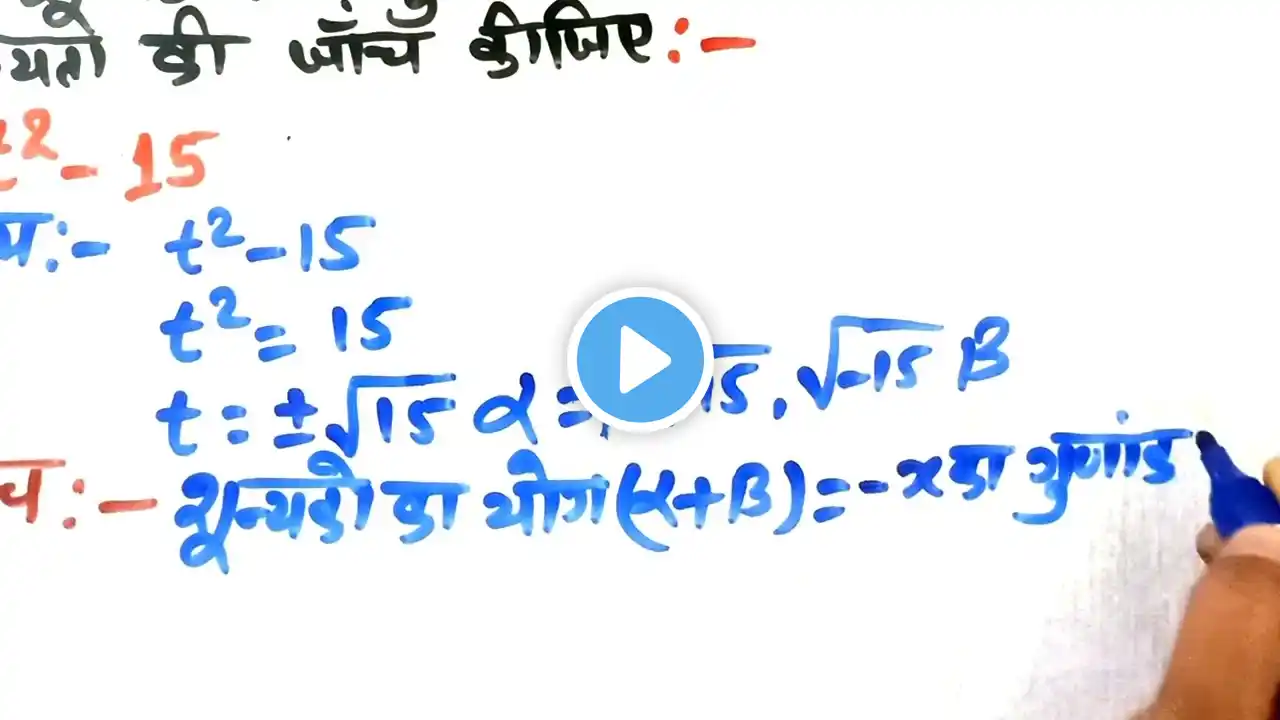 की जाँच कीजिए:-
- 15
:- t² - 15
t² = 15
t = ± √15 α = 15, √-15 β
:- शून्यकों का योग (α+β) = - x का गुणांक